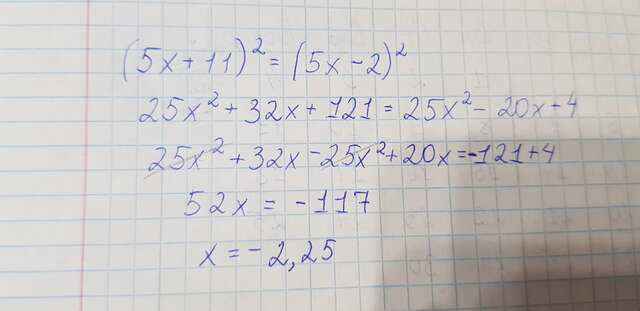 (5x+11)²=(5x-2)²
25x²+32x+121=25x²-20x+4
25x²+32x-25x²+20x=-121+4
52x=-117
x=-2,25